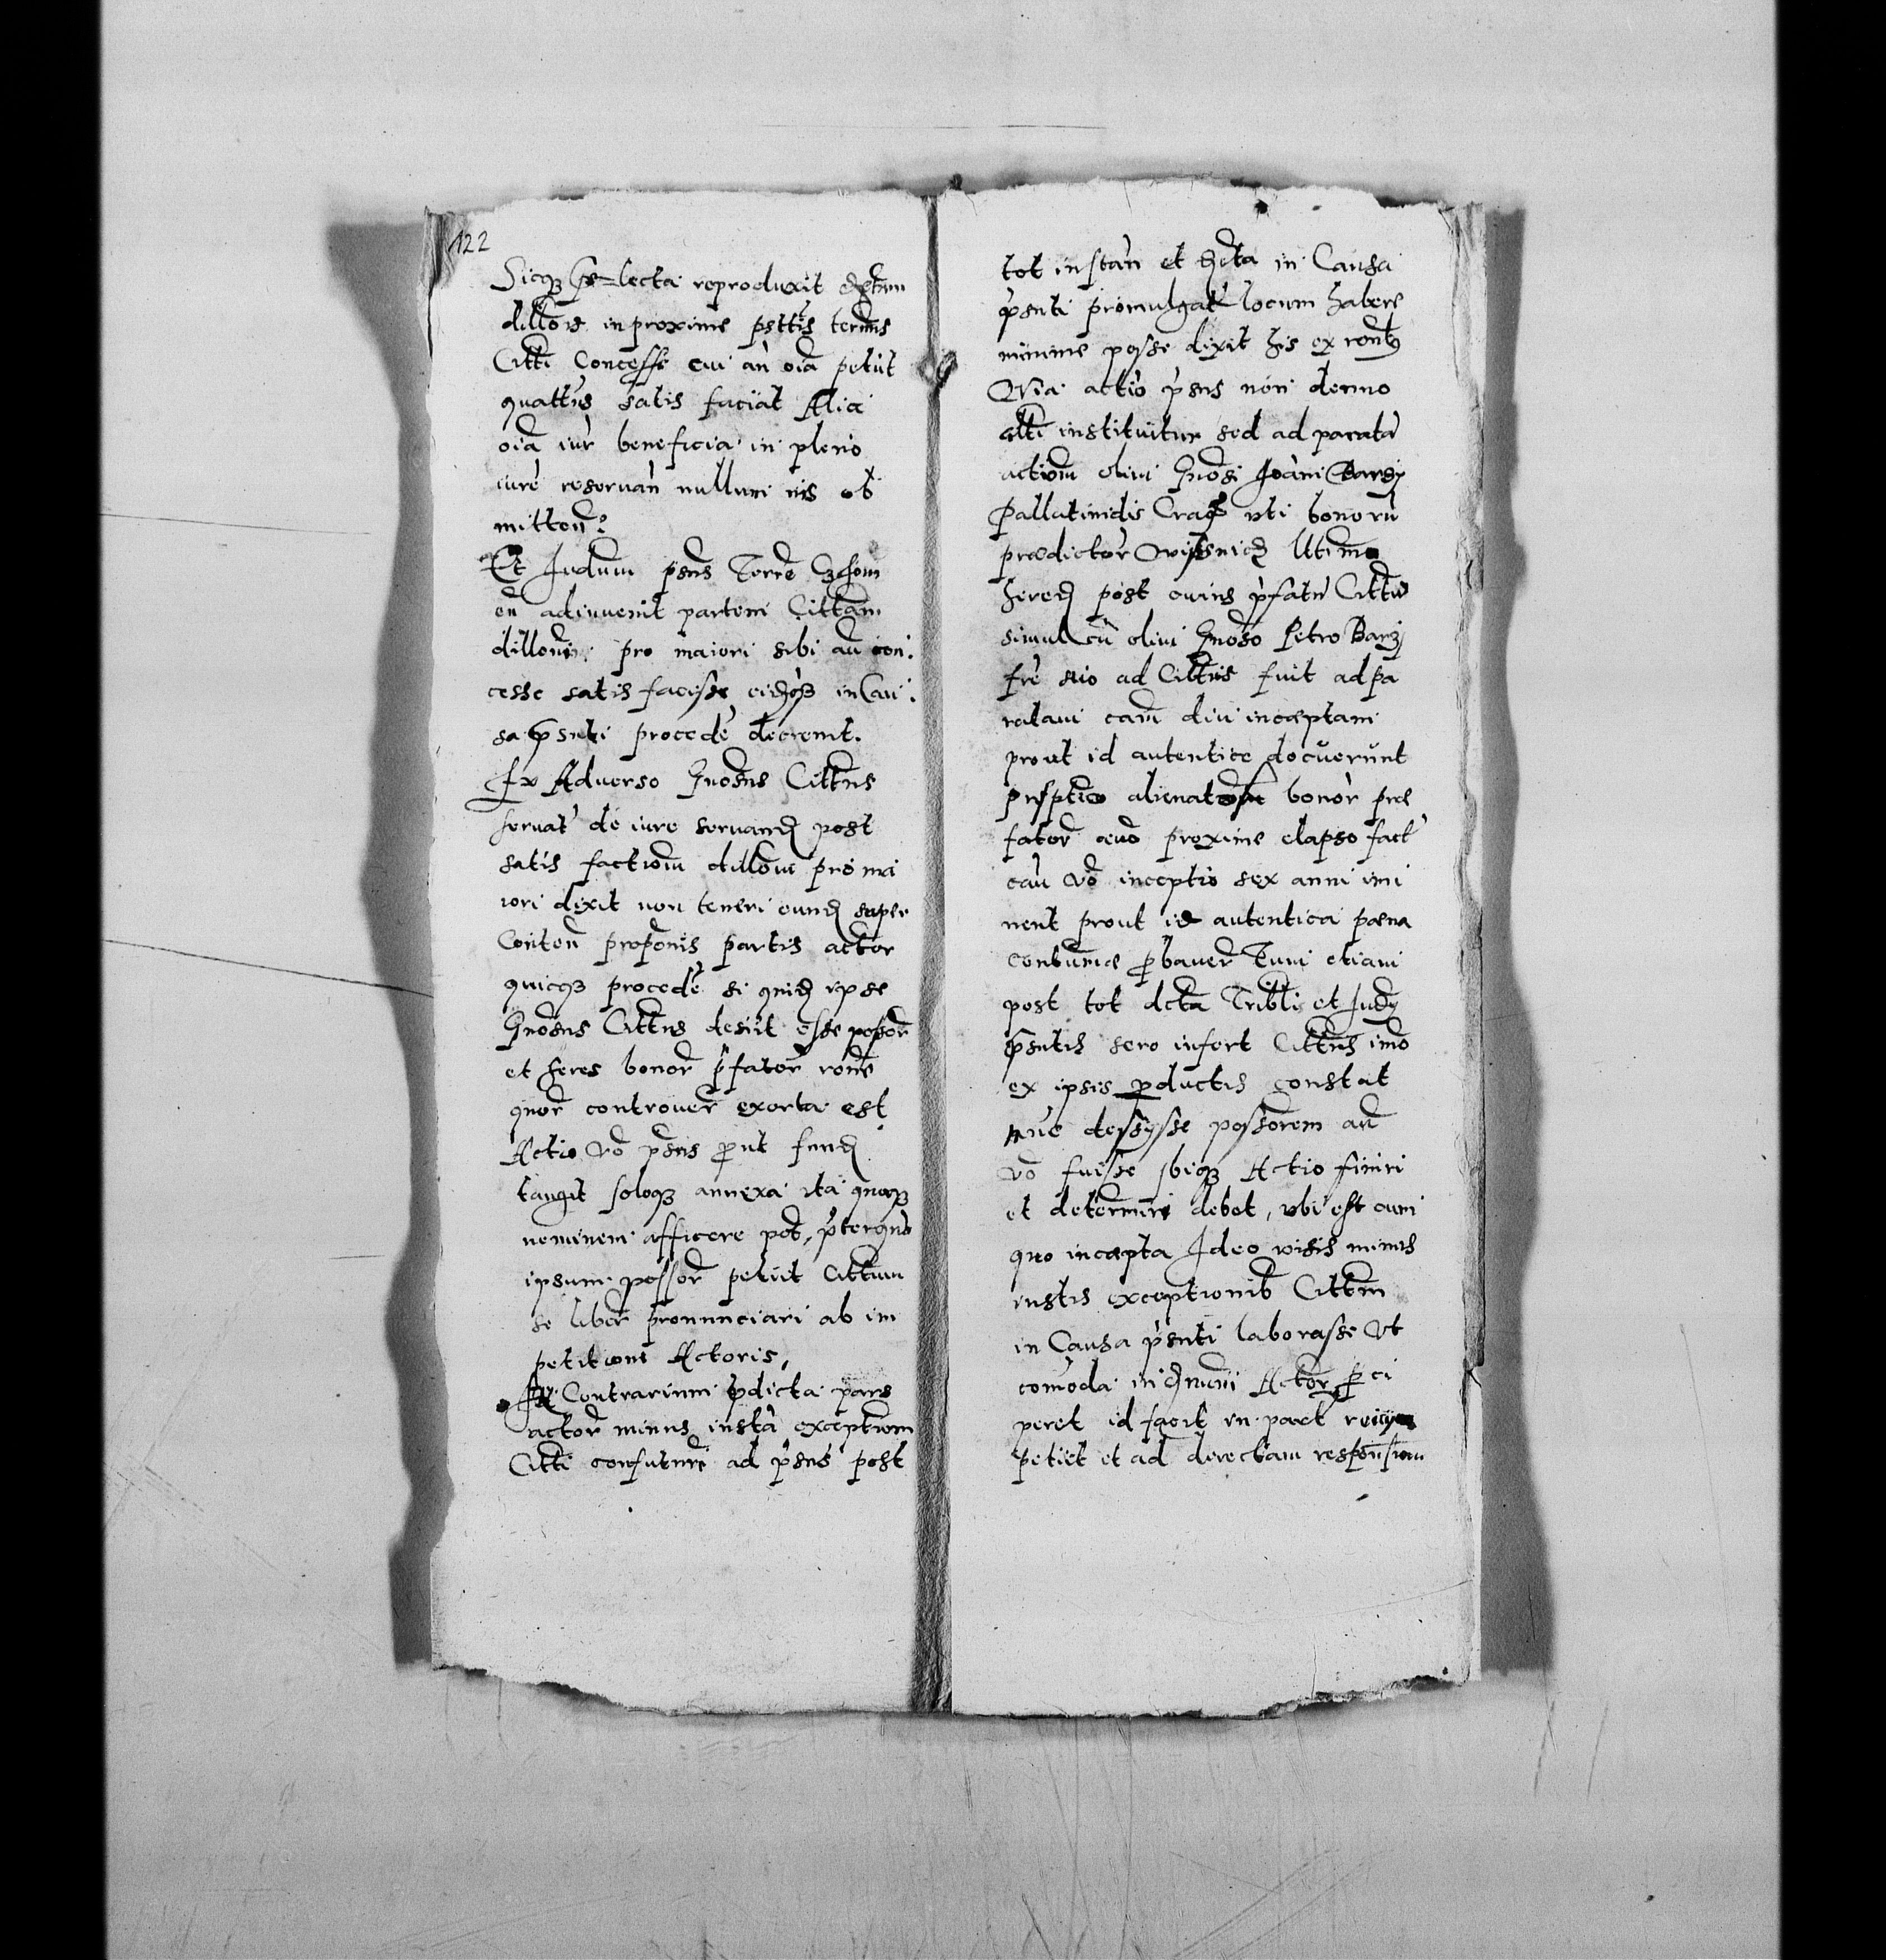 122
Sicq lecta reproduxit
dillois in proxime psttis termis
Citti Concesse cui an oia petiit
quattus satis faciat Alia
oia iur beneficia in pleno
iure reseruan nullum iis ob
mitten
Et Iudium psens Terre
en adinuenit partem Cittam
dilloni pro maiori sibi ad con
cesse satis facisse in Cau
sa psnti procede decreuit.
Ex Aduerso Gnosus Cittus
seruat de iure seruand post
satis factiom dilloni pro ma
iori dixit non teneri eund super
Conten proponis partis actor
quicq procede si quid ipse
Gnosus Cittus desiit esse possor
et heres bonor pfator rone
quor controuer exorta est
Actio vo psens put fund
tangit soloq annexa ita quoq
neminem afficere pot, pterqus
ipsum possor petiit Cittum
se liber pronunciari ab im
petitione Actoris,
In Contrarium pdicta pars
actor minus insta exceptiom
Citti confuturi ad psens post
tot instan et dcta in Causa
psenti promulgat locum habere
minime posse dixit his ex
Qvia actio psens non denuo
citti instituitur sed ad parata
actiom olim Gnosi Joanni Barzi
Pallatinidis Crac vti bonoru
prædictor Wissnicz Utimo
hered post cuius pfatu Cittus
simul cu olim Gnoso Petro Barzi
fre suo ad Cittus fuit adpa
ratam eam diu incæptam
prout id autentice docuerunt
alienatom bonor præ
fator æuo proxime elapso fact
cau vo incæptio sex anni imi
nent prout id autentica pæna
contumæ pbauer Tum etiam
post tot dcta Tribli et Judy
psentis sero infert Cittus imo
ex ipsis pductis constat
nue desysse possorem ad
vo fuisse ibiq Actio finiri
et determiri debet, vbi est cum
quo incæpta Ideo visis minus
iustis exceptionib Cittm
in Causa psnti laborasse vt
comoda Actor p ci
peret id facit in part
petiit et ad directam responsiom